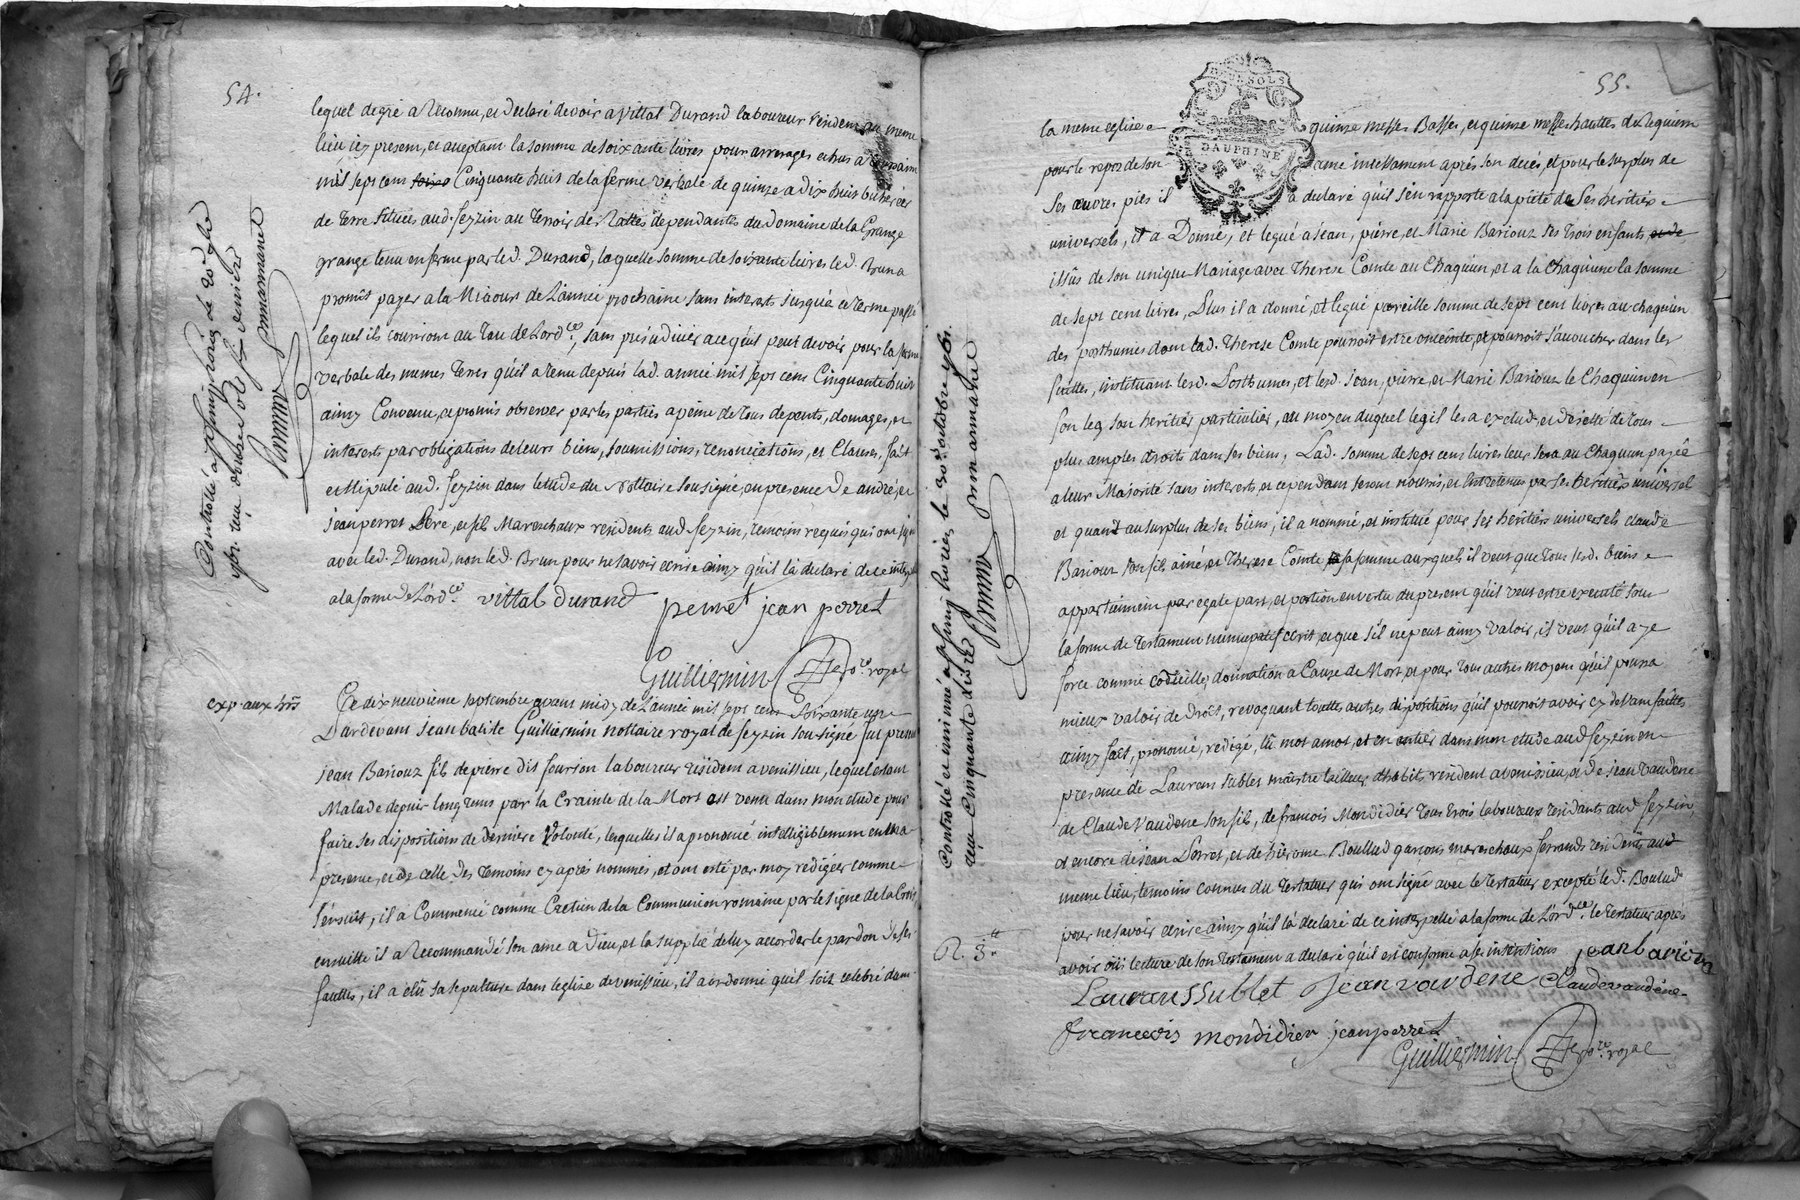 54.
lequel de gré a reconnu, et declaré devoir a vittal Durand laboureur resident au meme
lieu icy present, et acceptant la somme de soixante livres pour arrerages echus a
mil sept cent Cinquante huit de la ferme verbale de quinze a dix huit bicherées
de terre situées aud. seyzin au terroir de dependantes du Domaine de la Grange
grange tenu en ferme par led. Durand, laquelle somme de soixante livres led. Brun a
promit payer a la Miaout de L'année prochaine sans interets jusqu'a ce terme passé
lequel ils courriront au taux de Lord.ce, sans préjudicier a ce qu'il peut devoir pour la ferme
verbale des memes terres qu'il a tenu depuis lad. année mil sept cent Cinquante huit
ainsy Convenu, et promis observer par les parties a peine de tous depents, domages, et
interets par obligations de leurs biens, soumissions, renonciations, et Clauses, fait
et stipulé aud. seyzin dans letude du Nottaire sousigné, en presence de andré, et
jean perret Pere, et fils Mareschaux residents aud. seyzin, temoins requis qui ont signé
avec led. Durand, non led. Brun pour ne savoir ecrire ainsy qu'il l'a declaré de ce interpellé
a la forme de Lord.ce vittal durand perret jean perret
Guilliermin no.re royal
Controllé a st simphorien le 20 7bre
reçu douze sols six deniers
Prunmamanet
exp. aux hrs
Ce dix neuvieme septembre avant midy de L'année mil sept cent soixante une
Pardevant jean batiste Guilliermin nottaire royal de seyzin sousigné fut present
jean Bariouz fils de pierre dit seurion laboureur resident a venissieu, lequel etant
Malade depuis longtems par la Crainte de la Mort est venu dans mon etude pour
faire ses dispositions de derniere volonté, lesquelles il a prononcé intelligiblement en ma
presence, et de celle des temoins cy après nommés, et ont esté par moy redigées comme
sensuit, il a Commencé comme Cretien de la Communion romaine par le signe de la Croix
ensuitte il a Recommandé son ame a Dieu, et la supplié de luy accorder le pardon de ses
fauttes, il a elû sa sepulture dans leglise de venissieu, il a ordonné qu'il soit celebré dans
55.
DAUPHINE
la meme eglise quinze messes Basses, et quinze messes hautes de Requiem
pour le repos de son ame incessament après son decés, et pour le surplus de
ses œuvres pies il a declaré qu'il s'en rapporte a la piété de ses heritiers
universels, il a Donné, et legué a jean, pierre, et Marie Bariouz ses trois enfants
issûs de son unique Mariage avec Therese Comte au Chaqu'un, et a la Chaqu'une la somme
de sept cent livres, Plus il a donné, et legué pareille somme de sept cent livres au chaqu'un
des posthumes dont lad. Therese Comte pourroit estre enceinte, et pourroit s'acoucher dans les
suittes, instituant lesd. Posthumes, et lesd. jean, pierre, et Marie Bariouz le Chaqu'un en
son leg son heritier particulier, au moyen duquel leg il les a exclud et dejetté de tous
plus amples droits dans ses biens, Lad. somme de sept cent livres leur sera au Chaqu'un payée
a leur Majorité sans interets, et cependant seront nourris, et Entretenus par ses heritiers universels
et quant au surplus de ses biens, il a nommé, et institué pour ses heritiers universels claude
Bariouz son fils ainé, et Therese Comte sa femme auxquels il veut que tous sesd. biens
appartiennent par egale part, et portion en vertu du present qu'il veut estre executé sous
la forme de Testament nuncupatif ecrit, et que s'il ne peut ainsy valoir, il veut qu'il aye
force comme codicille, donnation a Cause de Mort et pour tous autres moyens qu'il pourra
mieux valoir de Droit, revoquant touttes autres dispositions qu'il pourroit avoir cy devant faittes
ainsy fait, prononcé, redigé, lû mot a mot, et en entier dans mon etude aud. seyzin en
presence de Laurens sublet maitre tailleur dhabits resident a venissieu, et de jean vaudene
de Claude Vaudene son fils, de francois Mondidier tous trois laboureurs residants aud. seyzin
et encore de jean Perret, et de hierome Boullud garçons mareschaux ferrands residents aud.
meme lieu, temoins connus du testateur qui ont signé avec le testateur excepté led. Boulud
pour ne savoir ecrire ainsy qu'il l'a declaré de ce interpellé a la forme de L'ord.ce le testateur après
avoir oüi lecture de son testament a declaré qu'il est conforme a ses intentions jean bariouz
Laurens Sublet Jean vaudene Claude vaudene
francois mondidier jean perret
Guilliermin no.re royal
Controllé et insinué a st simphorien le 20 octobre 1761.
reçu cinquante
Prunmamanet
R. 3.tt